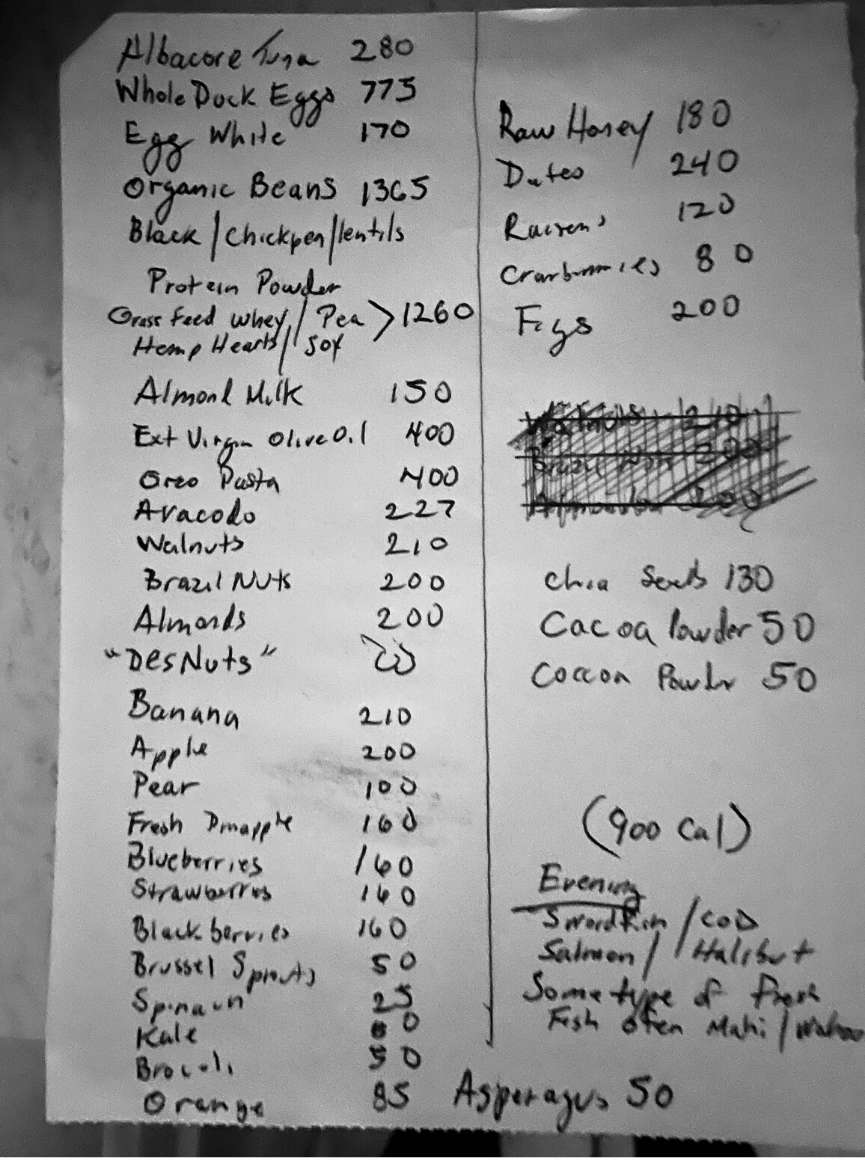 Albacore Tuna 280
Whole Duck Eggs 775
Egg White 170
Organic Beans 1365
Black / Chickpea / lentils
Protein Powder
Grass feed whey / Pea > 1260
Hemp Hearts / Soy
Almond Milk 150
Ext Virgin Olive Oil 400
Oreo Pasta 400
Avacodo 227
Walnuts 210
Brazil Nuts 200
Almonds 200
"Des Nuts"
Banana 210
Apple 200
Pear 100
Fresh Pinapple 160
Blueberries 160
Strawberries 160
Blackberries 160
Brussel Sprouts 50
Spinach 25
Kale
Brocoli 50
Orange 85
Raw Honey 180
Dates 240
Raisens 120
Cranberries 80
Figs 200
Walnuts 210
Brazil Nuts 200
Almonds 200
Chia Seeds 130
Cacoa Powder 50
Cocoon Powder 50
(900 Cal)
Evening
Swordfish / COD
Salmon / Halibut
Some type of fresh
Fish often Mahi / Wahoo
Asperagus 50